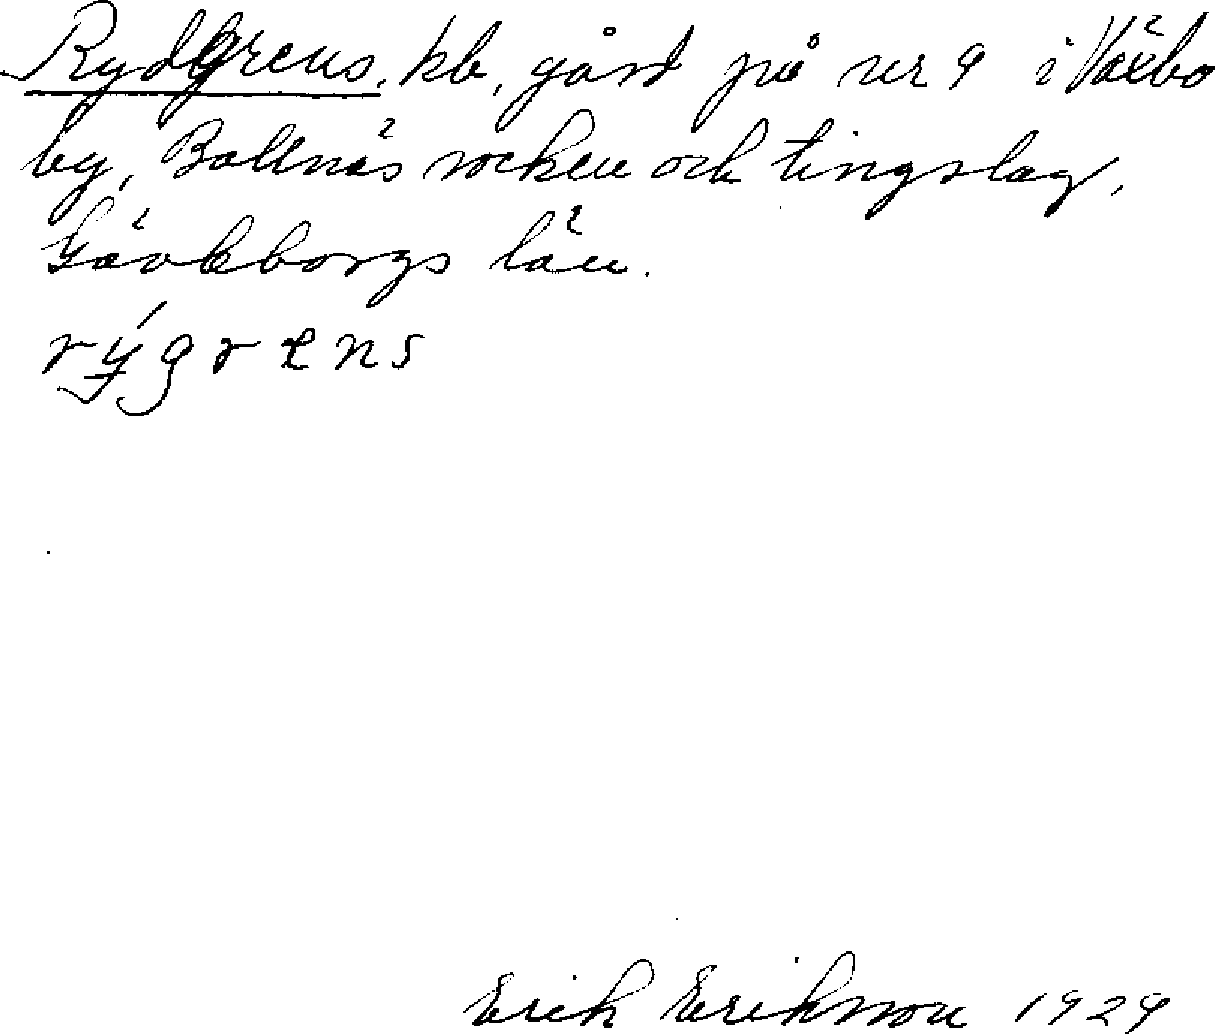 Rydgrens, kb, gård på nr 9 i Växbo
by, Bollnäs socken och tingslag,
Gävleborgs län.
rýgrens
Erik Eriksson 1929